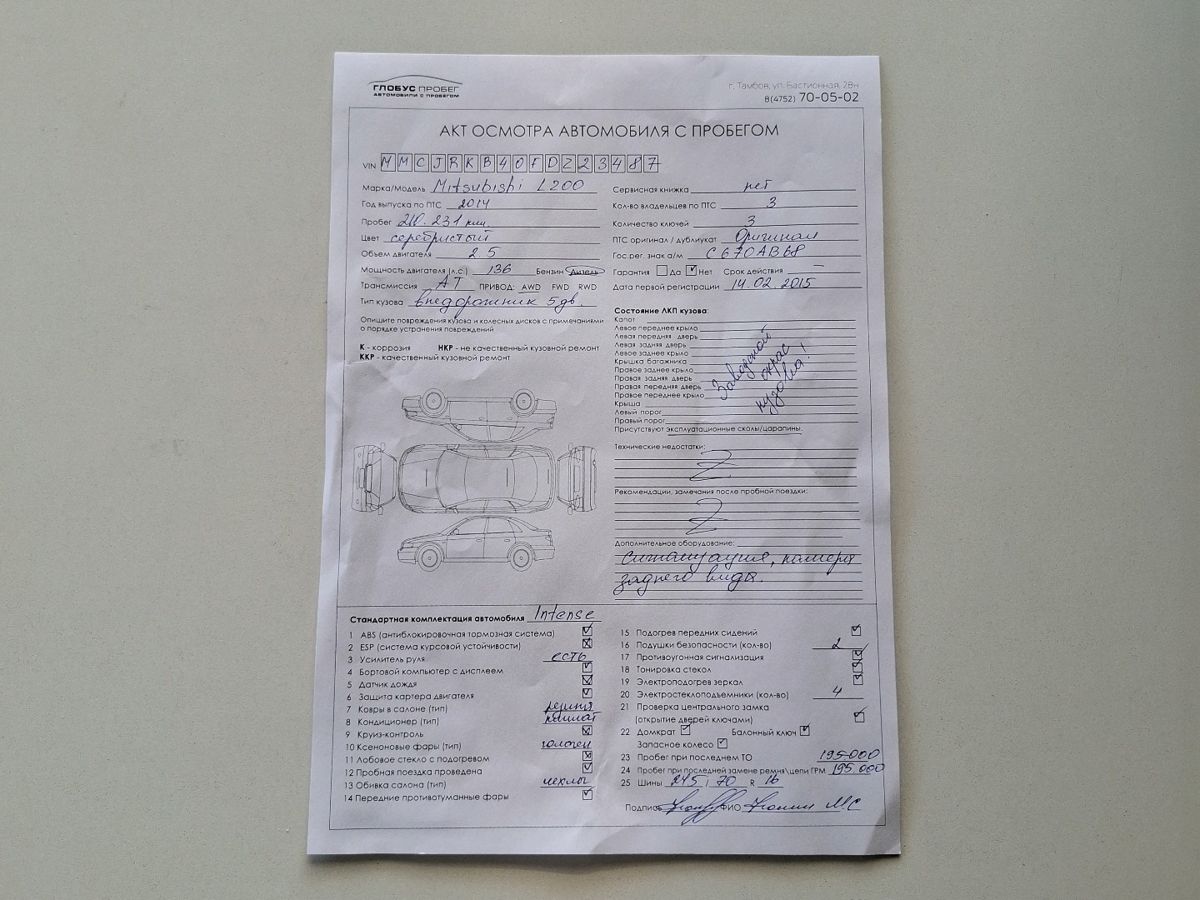 ГЛОБУС ПРОБЕГ
АВТОМОБИЛИ С ПРОБЕГОМ
г. Тамбов, ул. Бастионная, 28н
8(4752) 70-05-02
АКТ ОСМОТРА АВТОМОБИЛЯ С ПРОБЕГОМ
VIN MMCJRKB40FDZ23487
Марка/Модель Mitsubishi L200
Год выпуска по ПТС 2014
Пробег 210.231 км
Цвет серебристый
Объем двигателя 2.5
Мощность двигателя (л.с.) 136 Бензин Дизель
Трансмиссия АТ ПРИВОД: AWD FWD RWD
Тип кузова внедорожник 5дв.
Опишите повреждения кузова и колесных дисков с примечаниями
о порядке устранения повреждений
К - коррозия НКР - не качественный кузовной ремонт
ККР - качественный кузовной ремонт
Сервисная книжка нет
Кол-во владельцев по ПТС 3
Количество ключей 3
ПТС оригинал / дубликат Оригинал
Гос.рег. знак а/м С670АВ68
Гарантия Да Нет Срок действия —
Дата первой регистрации 14.02.2015
Состояние ЛКП кузова:
Капот
Левое переднее крыло
Левая передняя дверь
Левая задняя дверь
Левое заднее крыло
Крышка багажника
Правое заднее крыло
Правая задняя дверь
Правая передняя дверь
Правое переднее крыло
Крыша
Левый порог
Правый порог
Заводской
окрас
кузова!
Присутствуют эксплуатационные сколы/царапины.
Технические недостатки:
Z
Рекомендации, замечания после пробной поездки:
Z
Дополнительное оборудование:
сигнализация, камера
заднего вида.
Стандартная комплектация автомобиля Intense
1 ABS (антиблокировочная тормозная система)
2 ESP (система курсовой устойчивости)
3 Усилитель руля есть
4 Бортовой компьютер с дисплеем
5 Датчик дождя
6 Защита картера двигателя
7 Ковры в салоне (тип) резина
8 Кондиционер (тип) климат
9 Круиз-контроль
10 Ксеноновые фары (тип) галоген
11 Лобовое стекло с подогревом
12 Пробная поездка проведена
13 Обивка салона (тип) чехлы
14 Передние противотуманные фары
15 Подогрев передних сидений
16 Подушки безопасности (кол-во) 2
17 Противоугонная сигнализация
18 Тонировка стекол
19 Электроподогрев зеркал
20 Электростеклоподъемники (кол-во) 4
21 Проверка центрального замка
(открытие дверей ключами)
22 Домкрат Балонный ключ
Запасное колесо
23 Пробег при последнем ТО 195000
24 Пробег при последней замене ремня\цепи ГРМ 195.000
25 Шины 245 / 70 R 16
Подпись ФИО МС